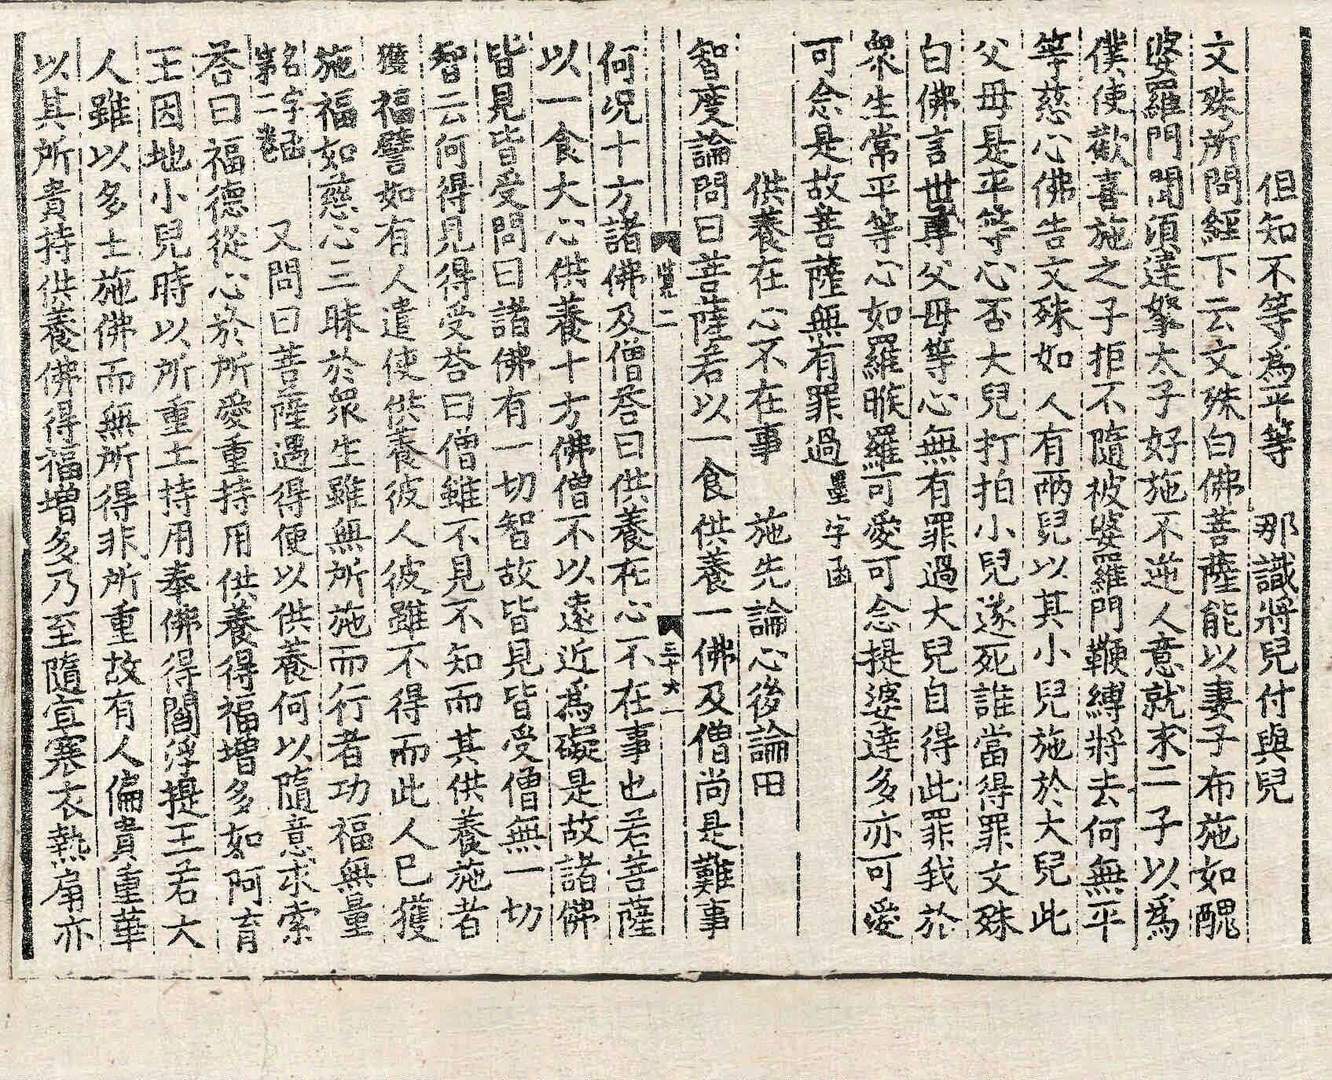 但知不等爲平等　那識將兒付與兒
文殊所問經下云文殊白佛菩薩能以妻子布施如醜
婆羅門聞須達拏太子好施不逆人意就求二子以爲
僕使歡喜施之子拒不隨被婆羅門鞭縛將去何無平
等慈心佛告文殊如人有兩兒以其小兒施於大兒此
父母是平等心否大兒打拍小兒遂死誰當得罪文殊
白佛言世尊父母等心無有罪過大兒自得此罪我於
衆生常平等心如羅睺羅可愛可念提婆達多亦可愛
可念是故菩薩無有罪過墨字函
供養在心不在事　施先論心後論田
智度論問曰菩薩若以一食供養一佛及僧尚是難事
覽二　三十六
何況十方諸佛及僧荅曰供養在心不在事也若菩薩
以一食大心供養十方佛僧不以遠近爲礙是故諸佛
皆見皆受問曰諸佛有一切智故皆見皆受僧無一切
智云何得見得受荅曰僧雖不見不知而其供養施者
獲福譬如有人遣使供養彼人彼雖不得而此人已獲
施福如慈心三昧於衆生雖無所施而行者功福無量
名字函
第二卷
又問曰菩薩遇得便以供養何以隨意求索
荅曰福德從心於所愛重持用供養得福增多如阿育
王因地小兒時以所重土持用奉佛得閻浮提王若大
人雖以多土施佛而無所得非所重故有人偏貴重華
以其所貴持供養佛得福增多乃至隨宜寒衣熱扇亦